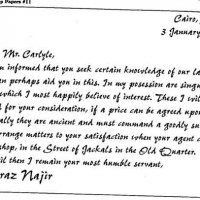 Papers #11
Cairo,
3 January
Mr. Carlyle,
n informed that you seek certain knowledge of our la
an perhaps aid you in this. In my posession are singu
which I most happily believe of interest. These I wil
d for your consideration, if a price can be agreed upon
ally they are ancient and must command a goodly su
rrange matters to your satisfaction when your agent c
shop, in the Street of Jackals in the Old Quarter.
il then I remain your most humble servant,
raz Najir